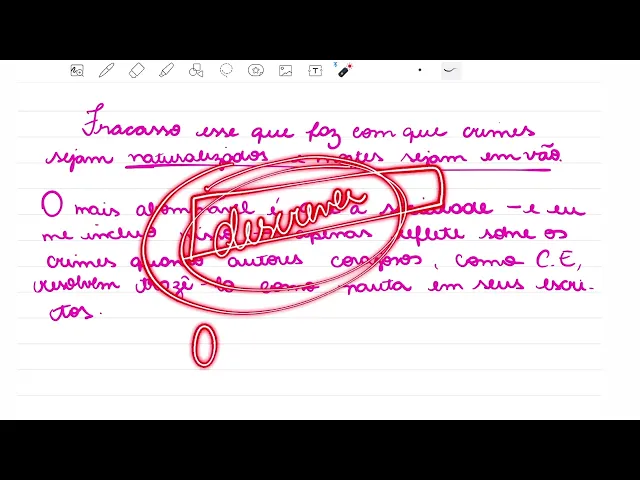 Fracasso esse que faz com que crimes
sejam naturalizados sejam em vão.
O mais é a sociedade - e eu
me incluo apenas reflete sobre os
crimes quando autores corajosos, como C.E,
resolvem trazê-lo como pauta em seus escri-
tos.
descrever
O